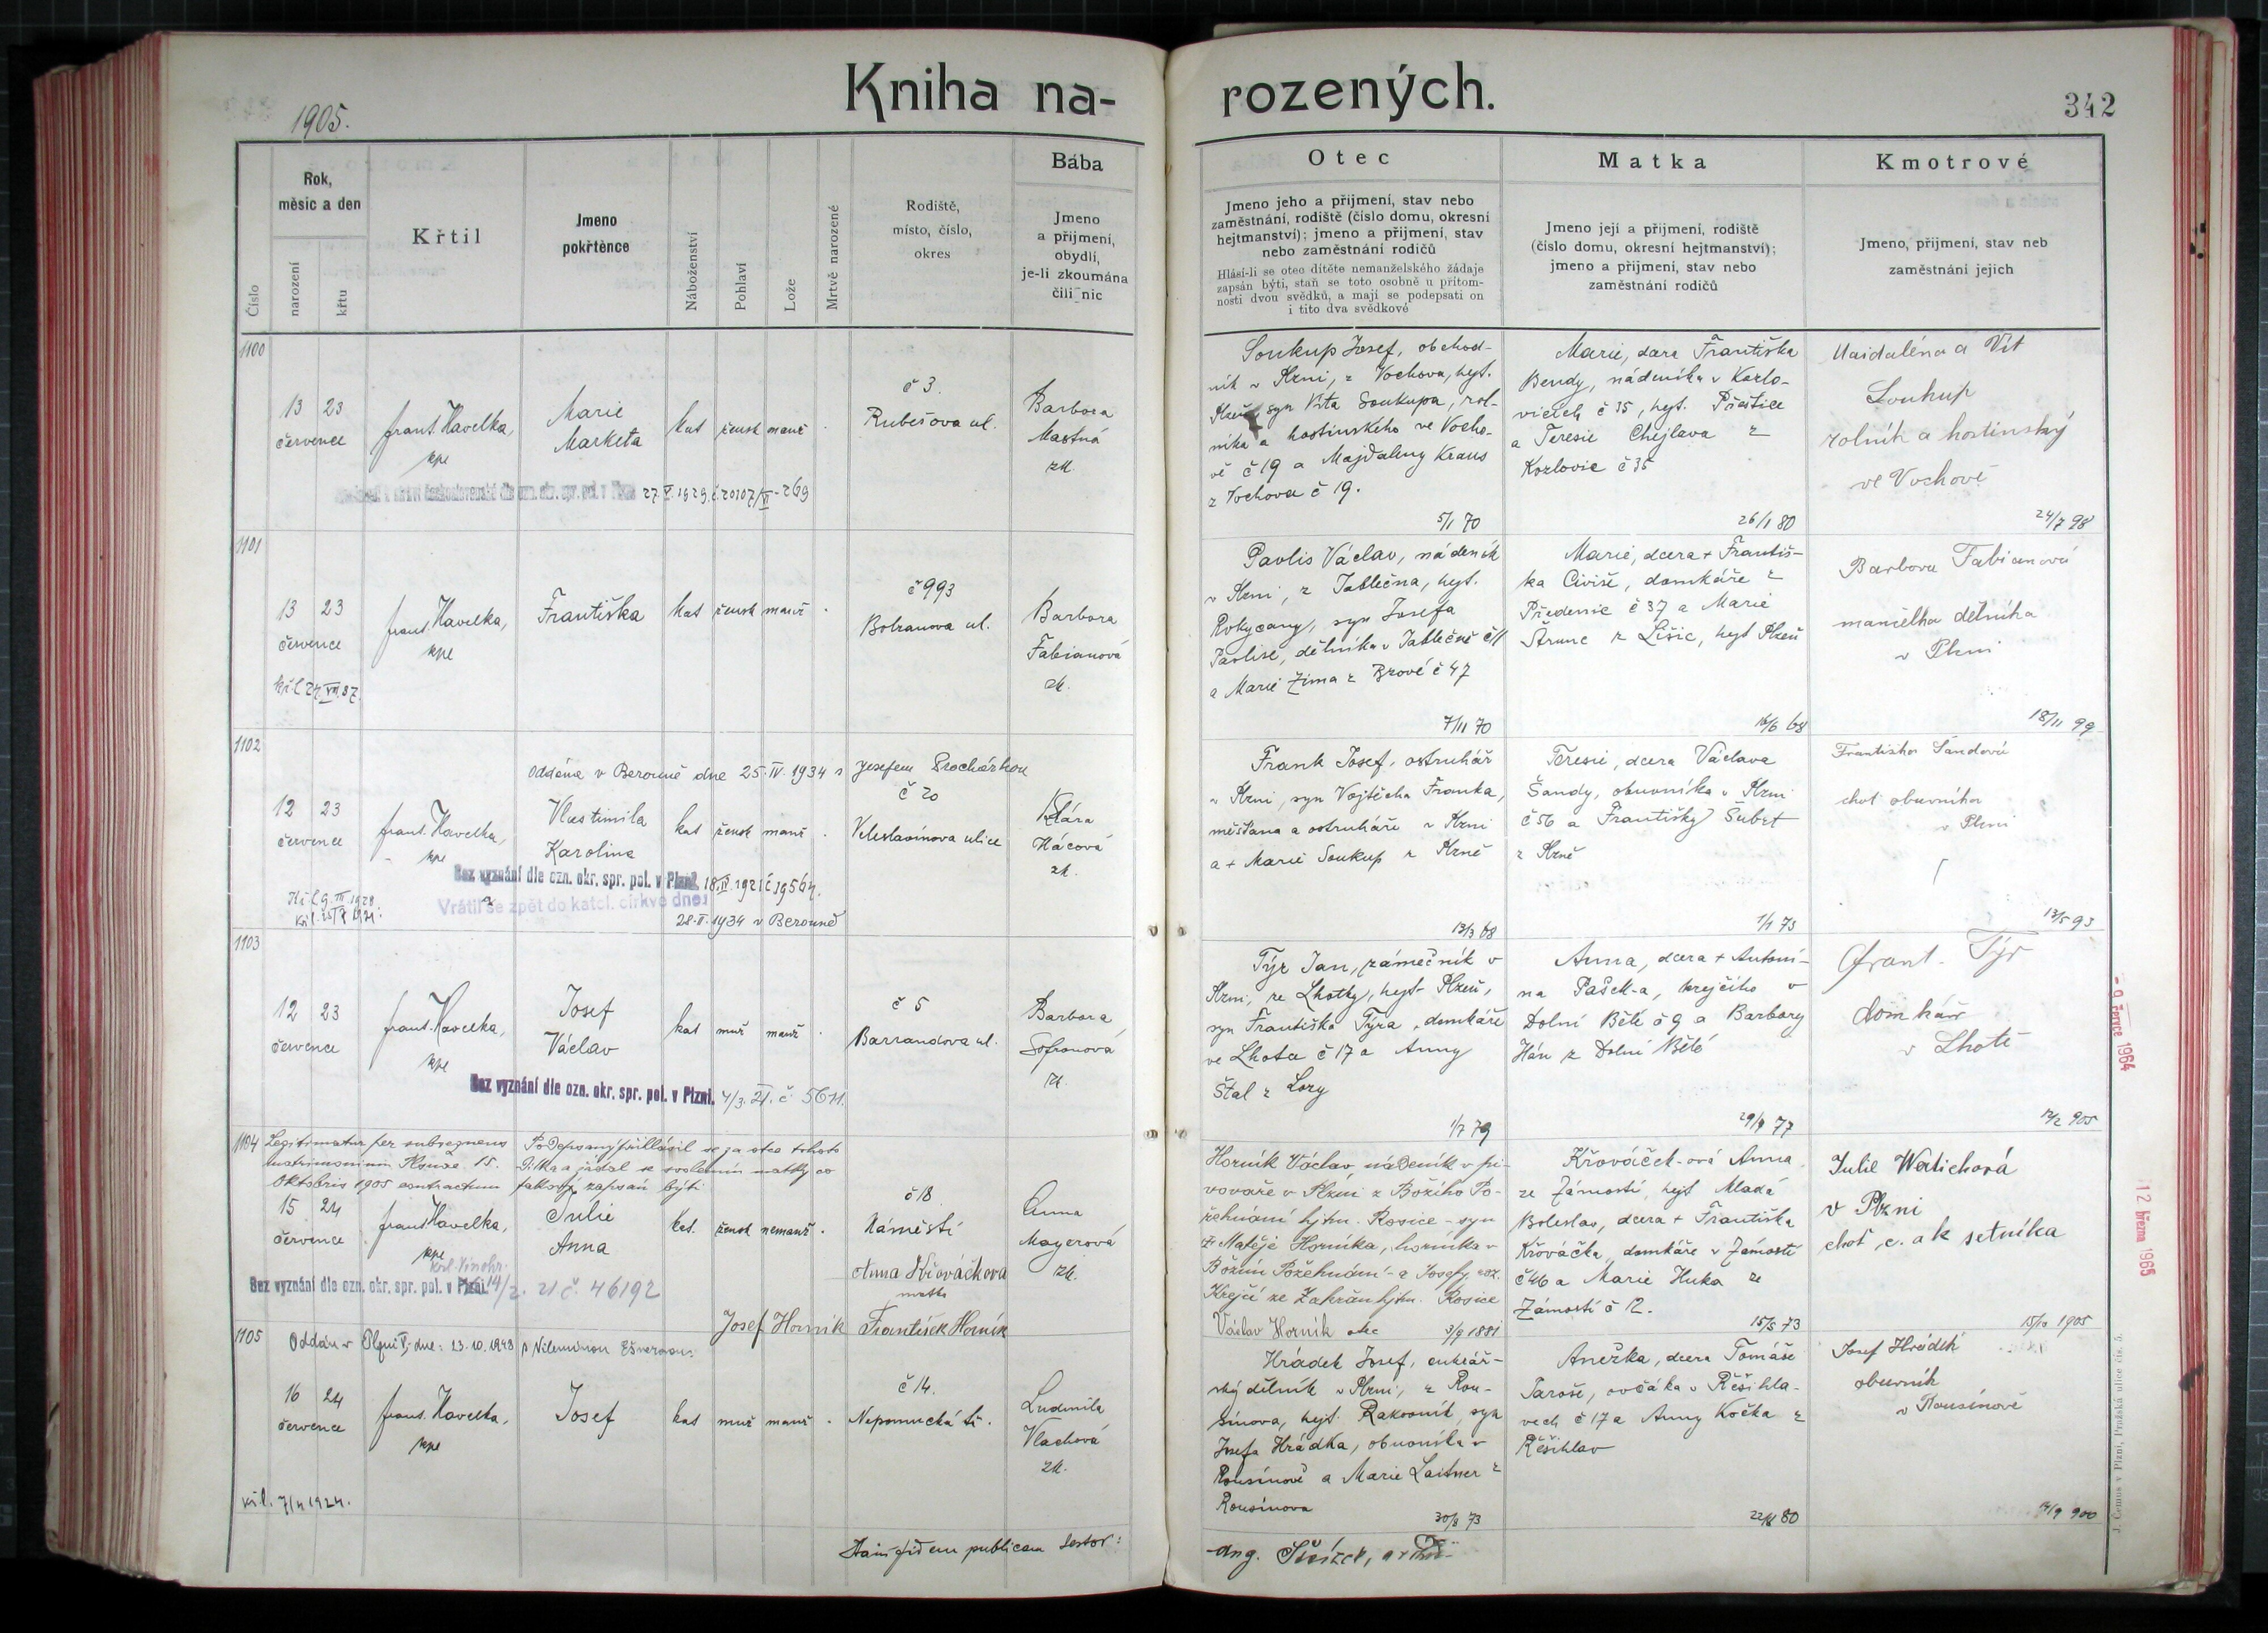 Kniha na-
rozených.
1905.
342
Číslo
Rok,
měsíc a den
narození
křtu
Křtil
Jmeno
pokřtěnce
Náboženství
Pohlaví
Lože
Mrtvě narozené
Rodiště,
místo, číslo,
okres
Bába
Jmeno
a přijmení,
obydlí,
je-li zkoumána
čili nic
Otec
Jmeno jeho a přijmení, stav nebo
zaměstnání, rodiště (číslo domu, okresní
hejtmanství); jmeno a přijmení, stav
nebo zaměstnání rodičů
Hlásí-li se otec dítěte nemanželského žádaje
zapsán býti, staň se toto osobně u přítom-
nosti dvou svědků, a mají se podepsati on
i tito dva svědkové
Matka
Jmeno její a přijmení, rodiště
(číslo domu, okresní hejtmanství);
jmeno a přijmení, stav nebo
zaměstnání rodičů
Kmotrové
Jmeno, přijmení, stav neb
zaměstnání jejich
1100
13 23
července
frant. Havelka,
kpl
Marie
Marketa
kat žensk manž .
č 3.
Rubešova ul.
Barbora
Mastná
zk.
27 V. 1929. č. 20107/VI-269
Soukup Josef, obchod-
ník v Plzni, z Vochova, hejt.
Plzeň, syn Víta Soukupa, rol-
níka a hostinského ve Vocho-
vě č 19 a Majdaleny Kraus
z Vochova č 19.
5/1 70
Marie, dcra Františka
Bendy, nádeníka v Kozlo-
vicích č 35, hejt. Přeštice
a Teresie Chejlava z
Kozlovic č 35
26/1 80
Maidaléna a Vít
Soukup
rolník a hostinský
ve Vochově
24/7 98
1101
13 23
července
frant. Havelka,
kpl
Františka
kat žensk manž .
č 993
Bolzanova ul.
Barbora
Fabianová
zk.
Pavlis Václav, nádeník
v Plzni, z Jablečna, hejt.
Rokycany, syn Josefa
Pavlise, dělníka v Jablečně č 11
a Marie Zima z Brové č 47
7/11 70
Marie, dcera + Františ-
ka Cíviše, domkáře z
Předenic č 37 a Marie
Štrunc z Lišic, hejt Plzeň
16/6 68
Barbora Fabianová
manželka dělníka
v Plzni
18/11 99
1102
Oddána v Berouně dne 25. IV. 1934 s Josefem Procházkou
12 23
července
frant. Havelka,
kpl
Vlastimila
Karolina
kat žensk manž .
č 20
Veleslavínova ulice
Klára
Hácová
zk.
Bez vyznání dle ozn. okr. spr. pol. v Plzni.
Vrátil se zpět do katol. církve dne:
28. II. 1934 v Berouně
Frank Josef, ostruhář
v Plzni, syn Vojtěcha Franka,
měšťana a ostruháře v Plzni
a + Marie Soukup z Plzně
13/3 68
Teresie, dcera Václava
Šandy, obuvníka v Plzni
č 56 a Františky Šubrt
z Plzně
1/1 73
Františka Šandová
choť obuvníka
v Plzni
13/5 93
1103
12 23
července
frant. Havelka,
kpl
Josef
Václav
kat muž manž .
č 5
Barrandova ul.
Barbora
Sofronová
zk.
Bez vyznání dle ozn. okr. spr. pol. v Plzni.
Týr Jan, zámečník v
Plzni, ze Lhotky, hejt- Plzeň,
syn Františka Týra, domkáře
ve Lhota č 17 a Anny
Štal z Lozy
1/7 79
Anna, dcera + Antoní-
na Pašek-a, krejčího v
Dolní Bělé č 9 a Barbory
Hán z Dolní Bělé
29/9 77
Frant. Týr
domkář
v Lhotě
12/2 905
1104
Legitimatur per subsequens
matrimonium Plznae 15.
Oktobris 1905 contractum
Podepsaný přihlásil se za otce tohoto
dítka a žádal se svolením matky co
takový zapsán býti
15 24
července
frant. Havelka,
kpl
Julie
Anna
kat. žensk nemanž .
č 18
Náměstí
Anna
Mayerová
zk.
Anna Křováčková
matka
Bez vyznání dle ozn. okr. spr. pol. v Plzni. 21 č. 46192
Josef Horník František Horník
Horník Václav, nádeník v pi-
vováře v Plzni z Božího Po-
žehnání hjtm. Rosice - syn
+ Matěje Horníka, horníka v
Božím Požehnání - a Josefy roz.
Krejčí ze Zakřan hjtm. Rosice
Václav Horník otec 3/9 1881
Křováček-ová Anna
ze Zámostí, hejt Mladá
Boleslav, dcera + Františka
Křováčka, domkáře v Zámostí
č 46 a Marie Huka ze
Zámostí č 12.
15/5 73
Julie Wertichová
v Plzni
choť c. a k setníka
15/10 1905
1105
Oddán v Plzni V, dne: 23. 10. 1948
16 24
července
frant. Havelka,
kpl
Josef
kat muž manž .
č 14.
Nepomucká tř.
Ludmila
Vlachová
zk.
7/4 1924.
Hrádek Josef, cukrář-
ský dělník v Plzni, z Rou-
sínova, hejt. Rakovník, syn
Josefa Hrádka, obuvníka v
Rousínově a Marie Laitner z
Rousínova
30/8 73
Anežka, dcera Tomáše
Taroše, ovčáka v Řešihla-
vech č 17 a Anny Kočka z
Řešihlav
Josef Hrádek
obuvník
v Rousínově
14/9 900
- 9. července 1964
12 března 1965
J. Čemus v Plzni, Pražská ulice čís. 5.